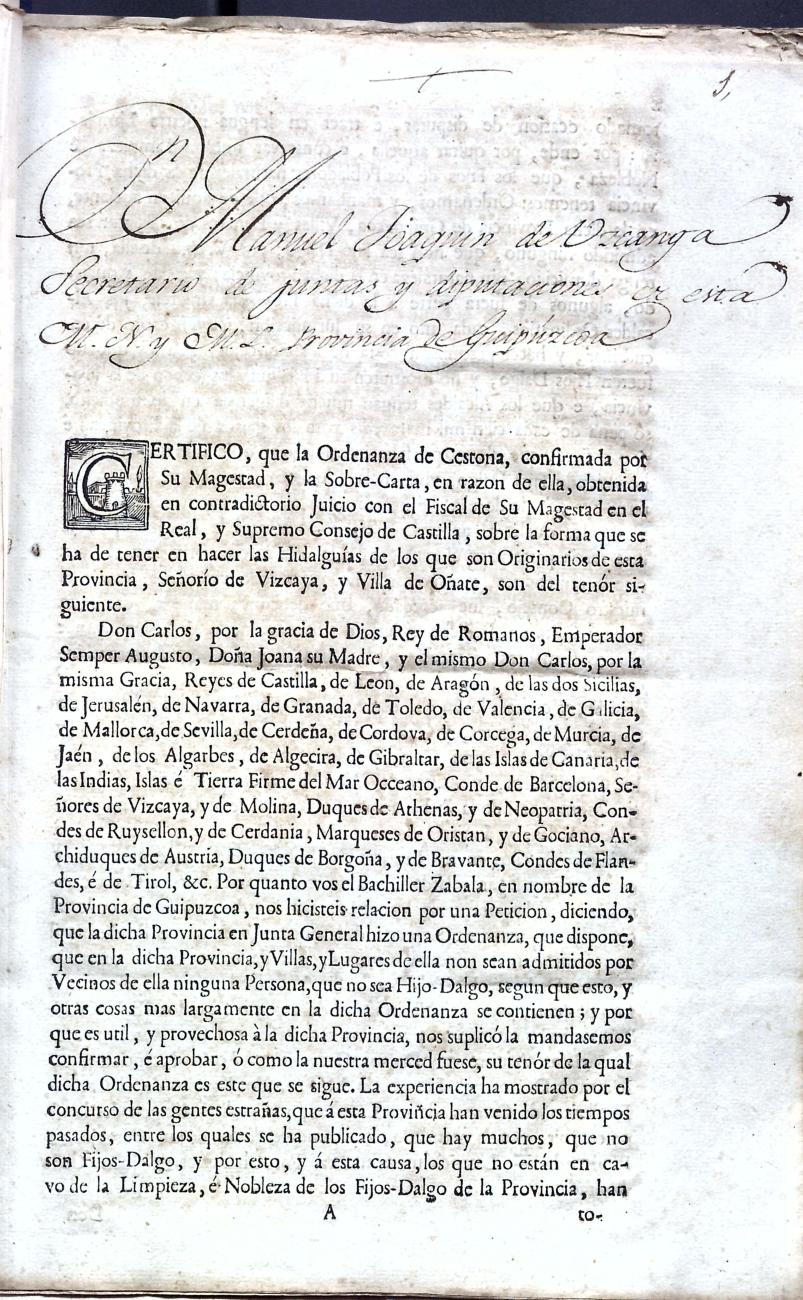 1,
Dn Manuel Joaquin de Uzcanga
Secretario de juntas y diputaciones en esta
M. N. y M. L. Provincia de Guipúzcoa
CERTIFICO, que la Ordenanza de Cestona, confirmada por
Su Magestad, y la Sobre-Carta, en razon de ella, obtenida
en contradictorio Juicio con el Fiscal de Su Magestad en el
Real, y Supremo Consejo de Castilla, sobre la forma que se
ha de tener en hacer las Hidalguías de los que son Originarios de esta
Provincia, Señorío de Vizcaya, y Villa de Oñate, son del tenór si-
guiente.
Don Carlos, por la gracia de Dios, Rey de Romanos, Emperador
Semper Augusto, Doña Joana su Madre, y el mismo Don Carlos, por la
misma Gracia, Reyes de Castilla, de Leon, de Aragón, de las dos Sicilias,
de Jerusalén, de Navarra, de Granada, de Toledo, de Valencia, de Galicia,
de Mallorca, de Sevilla, de Cerdeña, de Cordova, de Corcega, de Murcia, de
Jaén, de los Algarbes, de Algecira, de Gibraltar, de las Islas de Canaria, de
las Indias, Islas é Tierra Firme del Mar Occeano, Conde de Barcelona, Se-
ñores de Vizcaya, y de Molina, Duques de Athenas, y de Neopatria, Con-
des de Ruysellon, y de Cerdania, Marqueses de Oristan, y de Gociano, Ar-
chiduques de Austria, Duques de Borgoña, y de Bravante, Condes de Flan-
des, é de Tirol, &c. Por quanto vos el Bachiller Zabala, en nombre de la
Provincia de Guipuzcoa, nos hicisteis relacion por una Peticion, diciendo,
que la dicha Provincia en Junta General hizo una Ordenanza, que dispone,
que en la dicha Provincia, y Villas, y Lugares de ella non sean admitidos por
Vecinos de ella ninguna Persona, que no sea Hijo-Dalgo, segun que esto, y
otras cosas mas largamente en la dicha Ordenanza se contienen; y por
que es util, y provechosa à la dicha Provincia, nos suplicó la mandasemos
confirmar, é aprobar, ó como la nuestra merced fuese, su tenór de la qual
dicha Ordenanza es este que se sigue. La experiencia ha mostrado por el
concurso de las gentes estrañas, que á esta Provincia han venido los tiempos
pasados, entre los quales se ha publicado, que hay muchos, que no
son Fijos-Dalgo, y por esto, y á esta causa, los que no están en ca-
vo de la Limpieza, é Nobleza de los Fijos-Dalgo de la Provincia, han
A to-